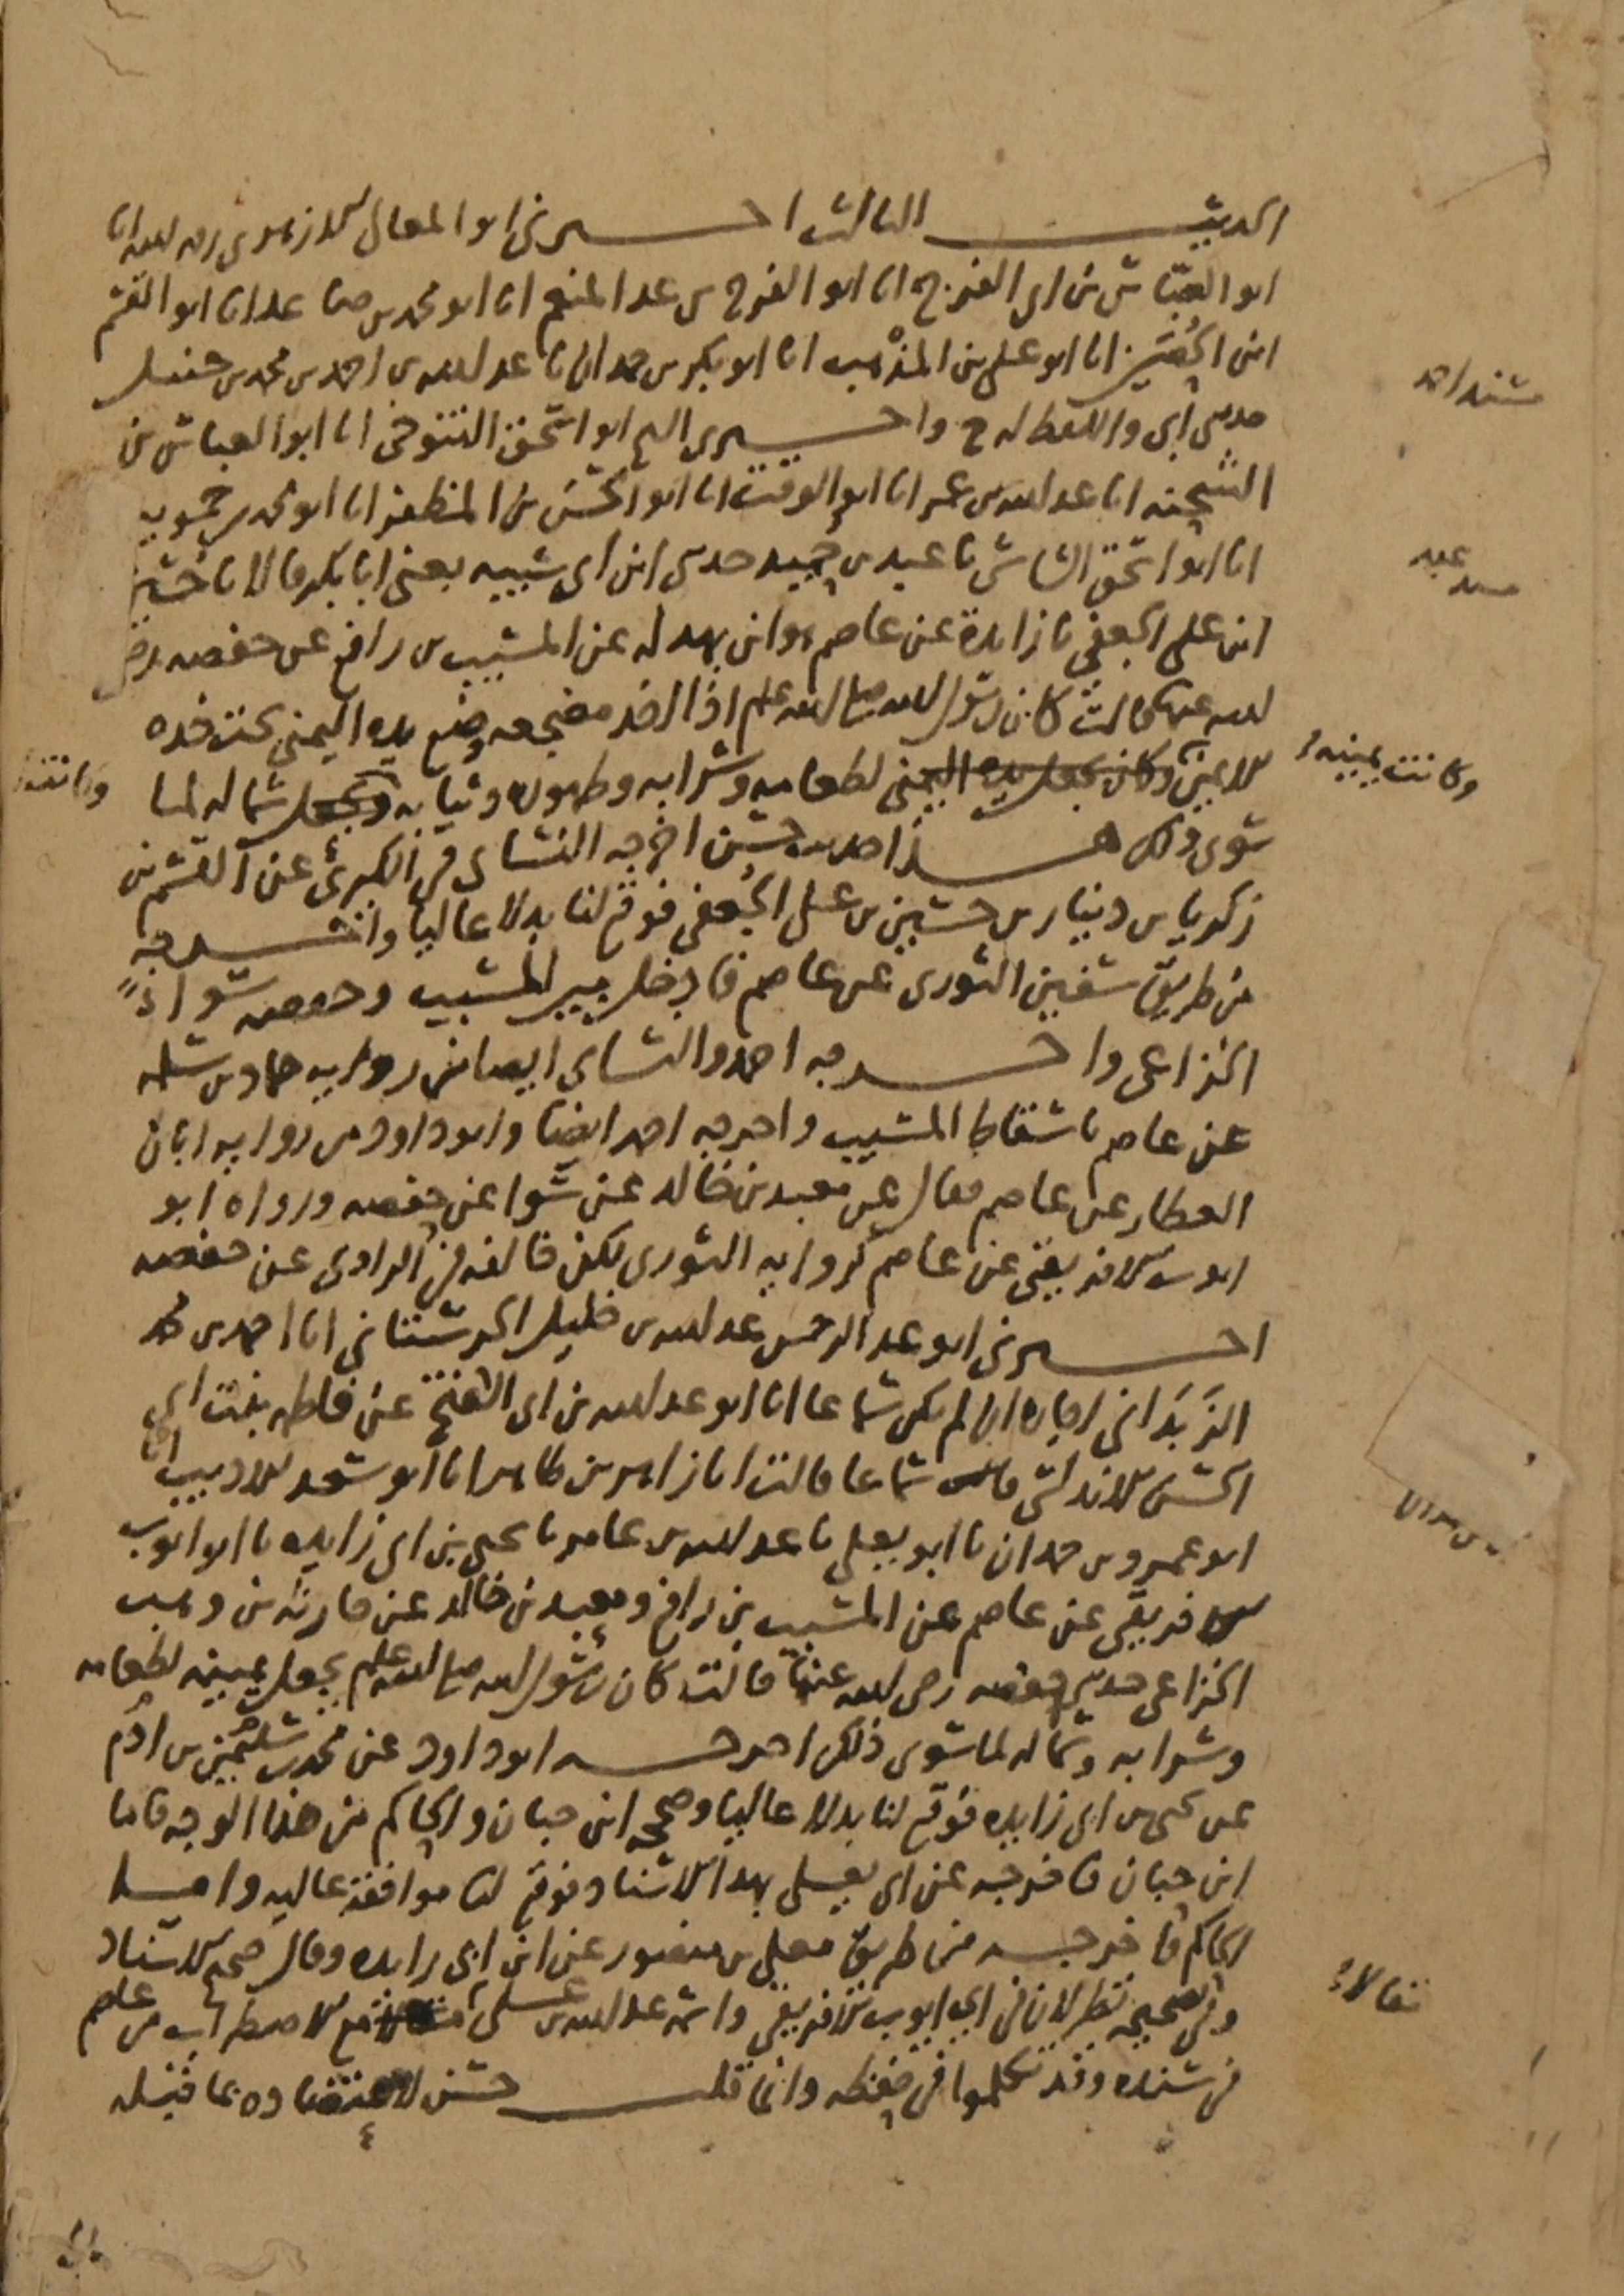 الحديث الثالث اخبرني ابو المعالي الازهري رحمه الله انا
ابو العباس بن ابي الفرج انا ابو الفرج بن عبد المنعم انا ابو محمد بن صاعد انا ابو القسم
ابن الحصين انا ابو علي بن المذهب انا ابو بكر بن حمدان نا عبد الله بن احمد بن محمد بن حنبل
مسند احمد
حدثني ابي واللفظ له ح واخبرني ابو اسحق التنوخي انا ابو العباس بن
الشحنه انا عبد الله بن عمر انا ابو الوقت انا ابو الحسن بن المظفر انا ابو محمد بن حمويه
انا ابو اسحق الشاشي نا عبد بن حميد حدثني ابن ابي شيبه يعني ابا بكر قالا نا حسين
مسند عبد
ابن علي الجعفي نا زايدة عن عاصم هو ابن بهدله عن المسيب بن رافع عن حفصه رضي
الله عنها قالت كان رسول الله صلى الله عليه وسلم اذا اخذ مضجعه وضع يده اليمنى تحت خده
الايمن وكان يجعل يده اليمنى لطعامه وشرابه وطهوره وثيابه ويجعل شماله لما
وكانت يمينه
وكانت
سوى ذلك هذا حديث حسن اخرجه النساي في الكبرى عن القسم بن
زكريا بن دينار بن حسين بن علي الجعفي فوقع لنا بدلا عاليا واخرجه
من طريق سفين الثوري عن عاصم فادخل بين المسيب وحفصه سواء
الخزاعي واخرجه احمد والنساي ايضا من رواية حماد بن سلمه
عن عاصم باسقاط المسيب واخرجه احمد ايضا وابو داود من رواية ابان
العطار عن عاصم فقال عن معبد بن خالد عن سوا عن حفصه ورواه ابو
ايوب الافريقي عن عاصم كرواية الثوري لكن خالفه في الراوي عن حفصه
اخبرني ابو عبد الرحمن عبد الله بن خليل الحرستاني انا احمد بن محمد
الزبداني اجازه ان لم يكن سماعا انا ابو عبد الله بن ابي الفتح عن فاطمه بنت ابي
الحسن الاندلسي سماعا قالت انا زاهر بن طاهر انا ابو سعد الاديب انا
ابو عمرو بن حمدان نا ابو يعلى نا عبد الله بن عامر نا يحيى بن ابي زايده نا ابو ايوب
الافريقي عن عاصم عن المسيب بن رافع ومعبد بن خالد عن حارثه بن وهب
الخزاعي حدثتني حفصه رضي الله عنها قالت كان رسول الله صلى الله عليه وسلم يجعل يمينه لطعامه
وشرابه وشماله لما سوى ذلك اخرجه ابو داود عن محمد بن سليمن بن ادم
عن يحيى بن ابي زايده فوقع لنا بدلا عاليا وصححه ابن حبان والحاكم من هذا الوجه فاما
ابن حبان فاخرجه عن ابي يعلى بهذا الاسناد فوقع لنا موافقة عاليه واما
الحاكم فاخرجه من طريق معلى بن منصور عن ابن ابي زايده وقال صحيح الاسناد
وفي تصحيحه نظر لان في ابي ايوب الافريقي واسمه عبد الله بن علي مقالا مع الاضطراب من عاصم
مقالا
في سنده وقد تكلموا في حفظه وانما قلت حسن لاعتضاده بما قبله